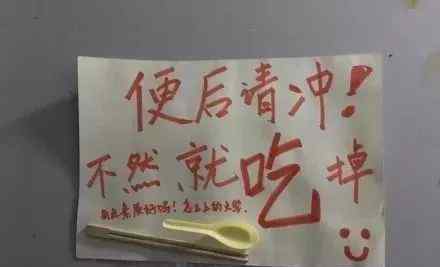 便后请冲!
不然就吃掉